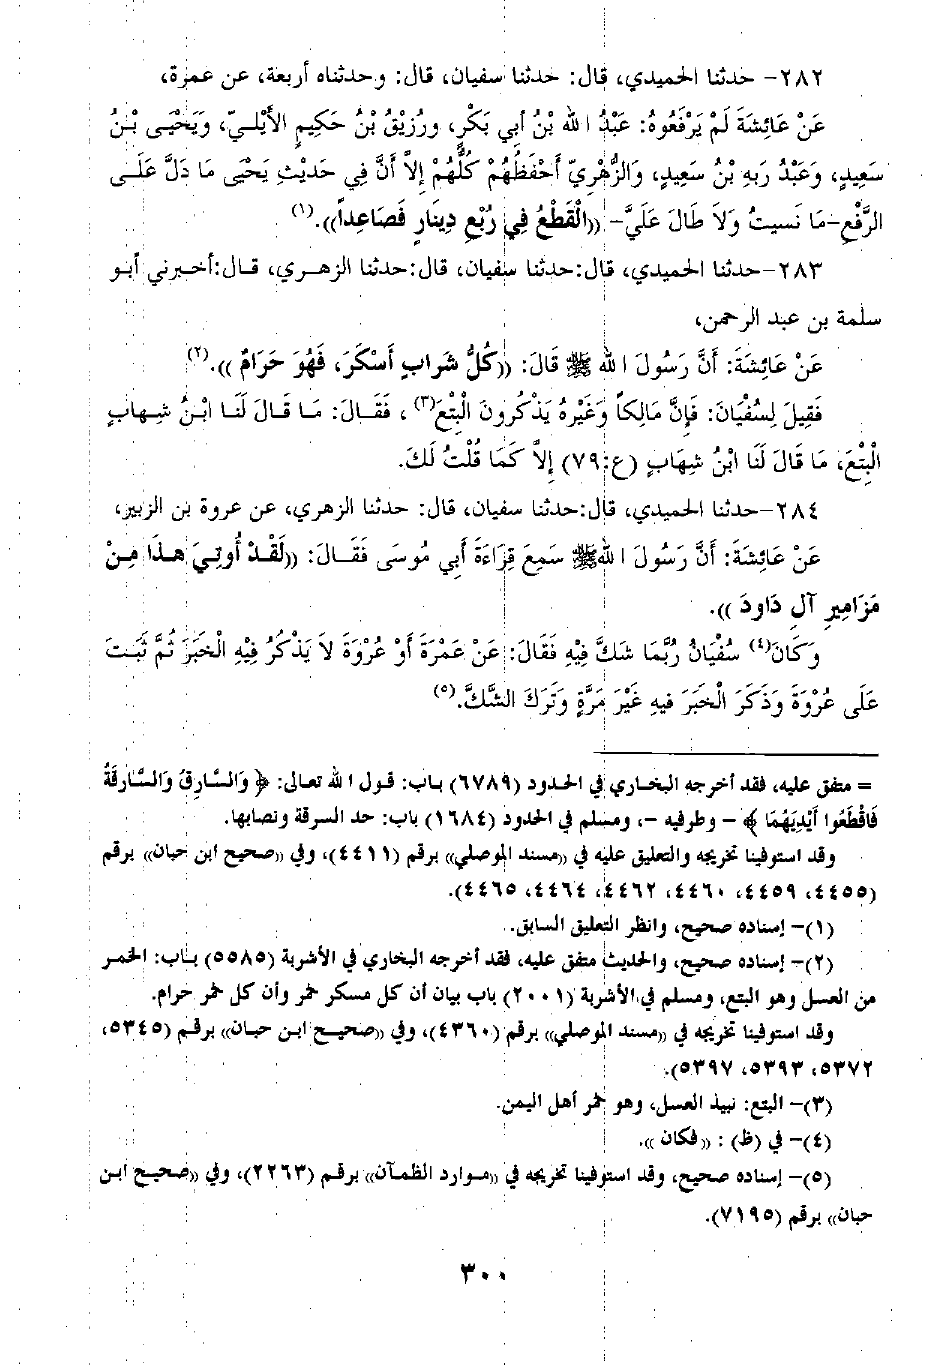 ٢٨٢- حدثنا الحميدي، قال: حدثنا سفيان، قال: وحدثناه أربعة، عن عمرة،
عَنْ عَائِشَةَ لَمْ يَرْفَعُوهُ: عَبْدُ اللهِ بْنُ أَبِي بَكْرٍ، ورُزَيْقُ بْنُ حَكِيمٍ الأَيْلِيّ، وَيَحْيَى بْنُ
سَعِيدٍ، وَعَبْدُ رَبِهِ بْنُ سَعِيدٍ، وَالزُّهْرِيّ أَحْفَظُهُمْ كُلُّهُمْ إِلاَّ أَنَّ فِي حَدِيْثِ يَحْيَى مَا دَلَّ عَلَى
الرَّفْعِ-مَا نَسيتُ وَلاَ طَالَ عَلَيَّ- ((الْقَطْعُ فِي رُبْعِ دِينَارٍ فَصَاعِداً)).(١)
٢٨٣-حدثنا الحميدي، قال:حدثنا سفيان، قال:حدثنا الزهري، قال:أخبرني أبو
سلمة بن عبد الرحمن،
عَنْ عَائِشَةَ: أَنَّ رَسُولَ اللهِ ﷺ قَالَ: ((كُلُّ شَرابٍ أَسْكَرَ، فَهُوَ حَرَامٌ )).(٢)
فَقِيلَ لِسُفْيَانَ: فَإِنَّ مَالِكاً وَغَيْرَهُ يَذْكُرونَ الْبِتْعَ(٣) ، فَقَالَ: مَا قَالَ لَنَا ابْنُ شِهابٍ
الْبِتْعَ، مَا قَالَ لَنَا ابْنُ شِهَابٍ (ع:٧٩) إِلاَّ كَمَا قُلْتُ لَكَ.
٢٨٤-حدثنا الحميدي، قال:حدثنا سفيان، قال: حدثنا الزهري، عن عروة بن الزبير،
عَنْ عَائِشَةَ: أَنَّ رَسُولَ اللهِ ﷺ سَمِعَ قِرَاءَةَ أَبِي مُوسَى فَقَالَ: ((لَقَدْ أُوتِيَ هذَا مِنْ
مَزَامِيرِ آلِ دَاودَ )).
وَكَانَ(٤) سُفْيَانُ رُبَّمَا شَكَّ فِيْهِ فَقَالَ: عَنْ عَمْرَةَ أَوْ عُرْوَةَ لاَ يَذْكُرُ فِيْهِ الْخَبَرَ ثُمَّ ثَبَتَ
عَلَى عُرْوَةَ وَذَكَرَ الْخَبَرَ فيهِ غَيْرَ مَرَّةٍ وَتَرَكَ الشَّكَّ.(٥)
= متفق عليه، فقد أخرجه البخاري في الحدود (٦٧٨٩) باب: قول الله تعالى: ﴿ وَالسَّارِقُ وَالسَّارِقَةُ
فَاقْطَعُوا أَيْدِيَهُمَا ﴾ - وطرفيه -، ومسلم في الحدود (١٦٨٤) باب: حد السرقة ونصابها.
وقد استوفينا تخريجه والتعليق عليه في ((مسند الموصلي)) برقم (٤٤١١)، وفي ((صحيح ابن حبان)) برقم
(٤٤٥٥، ٤٤٥٩، ٤٤٦٠، ٤٤٦٢، ٤٤٦٤، ٤٤٦٥).
(١)- إسناده صحيح، وانظر التعليق السابق.
(٢)- إسناده صحيح، والحديث متفق عليه، فقد أخرجه البخاري في الأشربة (٥٥٨٥) باب: الخمر
من العسل وهو البتع، ومسلم في الأشربة (٢٠٠١) باب بيان أن كل مسكر خمر وأن كل خمر حرام.
وقد استوفينا تخريجه في ((مسند الموصلي)) برقم (٤٣٦٠)، وفي ((صحيح ابن حبان)) برقم (٥٣٤٥،
٥٣٧٢، ٥٣٩٣، ٥٣٩٧).
(٣)- البتع: نبيذ العسل، وهو خمر أهل اليمن.
(٤)- في (ظ) : ((فكان )).
(٥)- إسناده صحيح، وقد استوفينا تخريجه في ((موارد الظمآن)) برقم (٢٢٦٣)، وفي ((صحيح ابن
حبان)) برقم (٧١٩٥).
٣٠٠